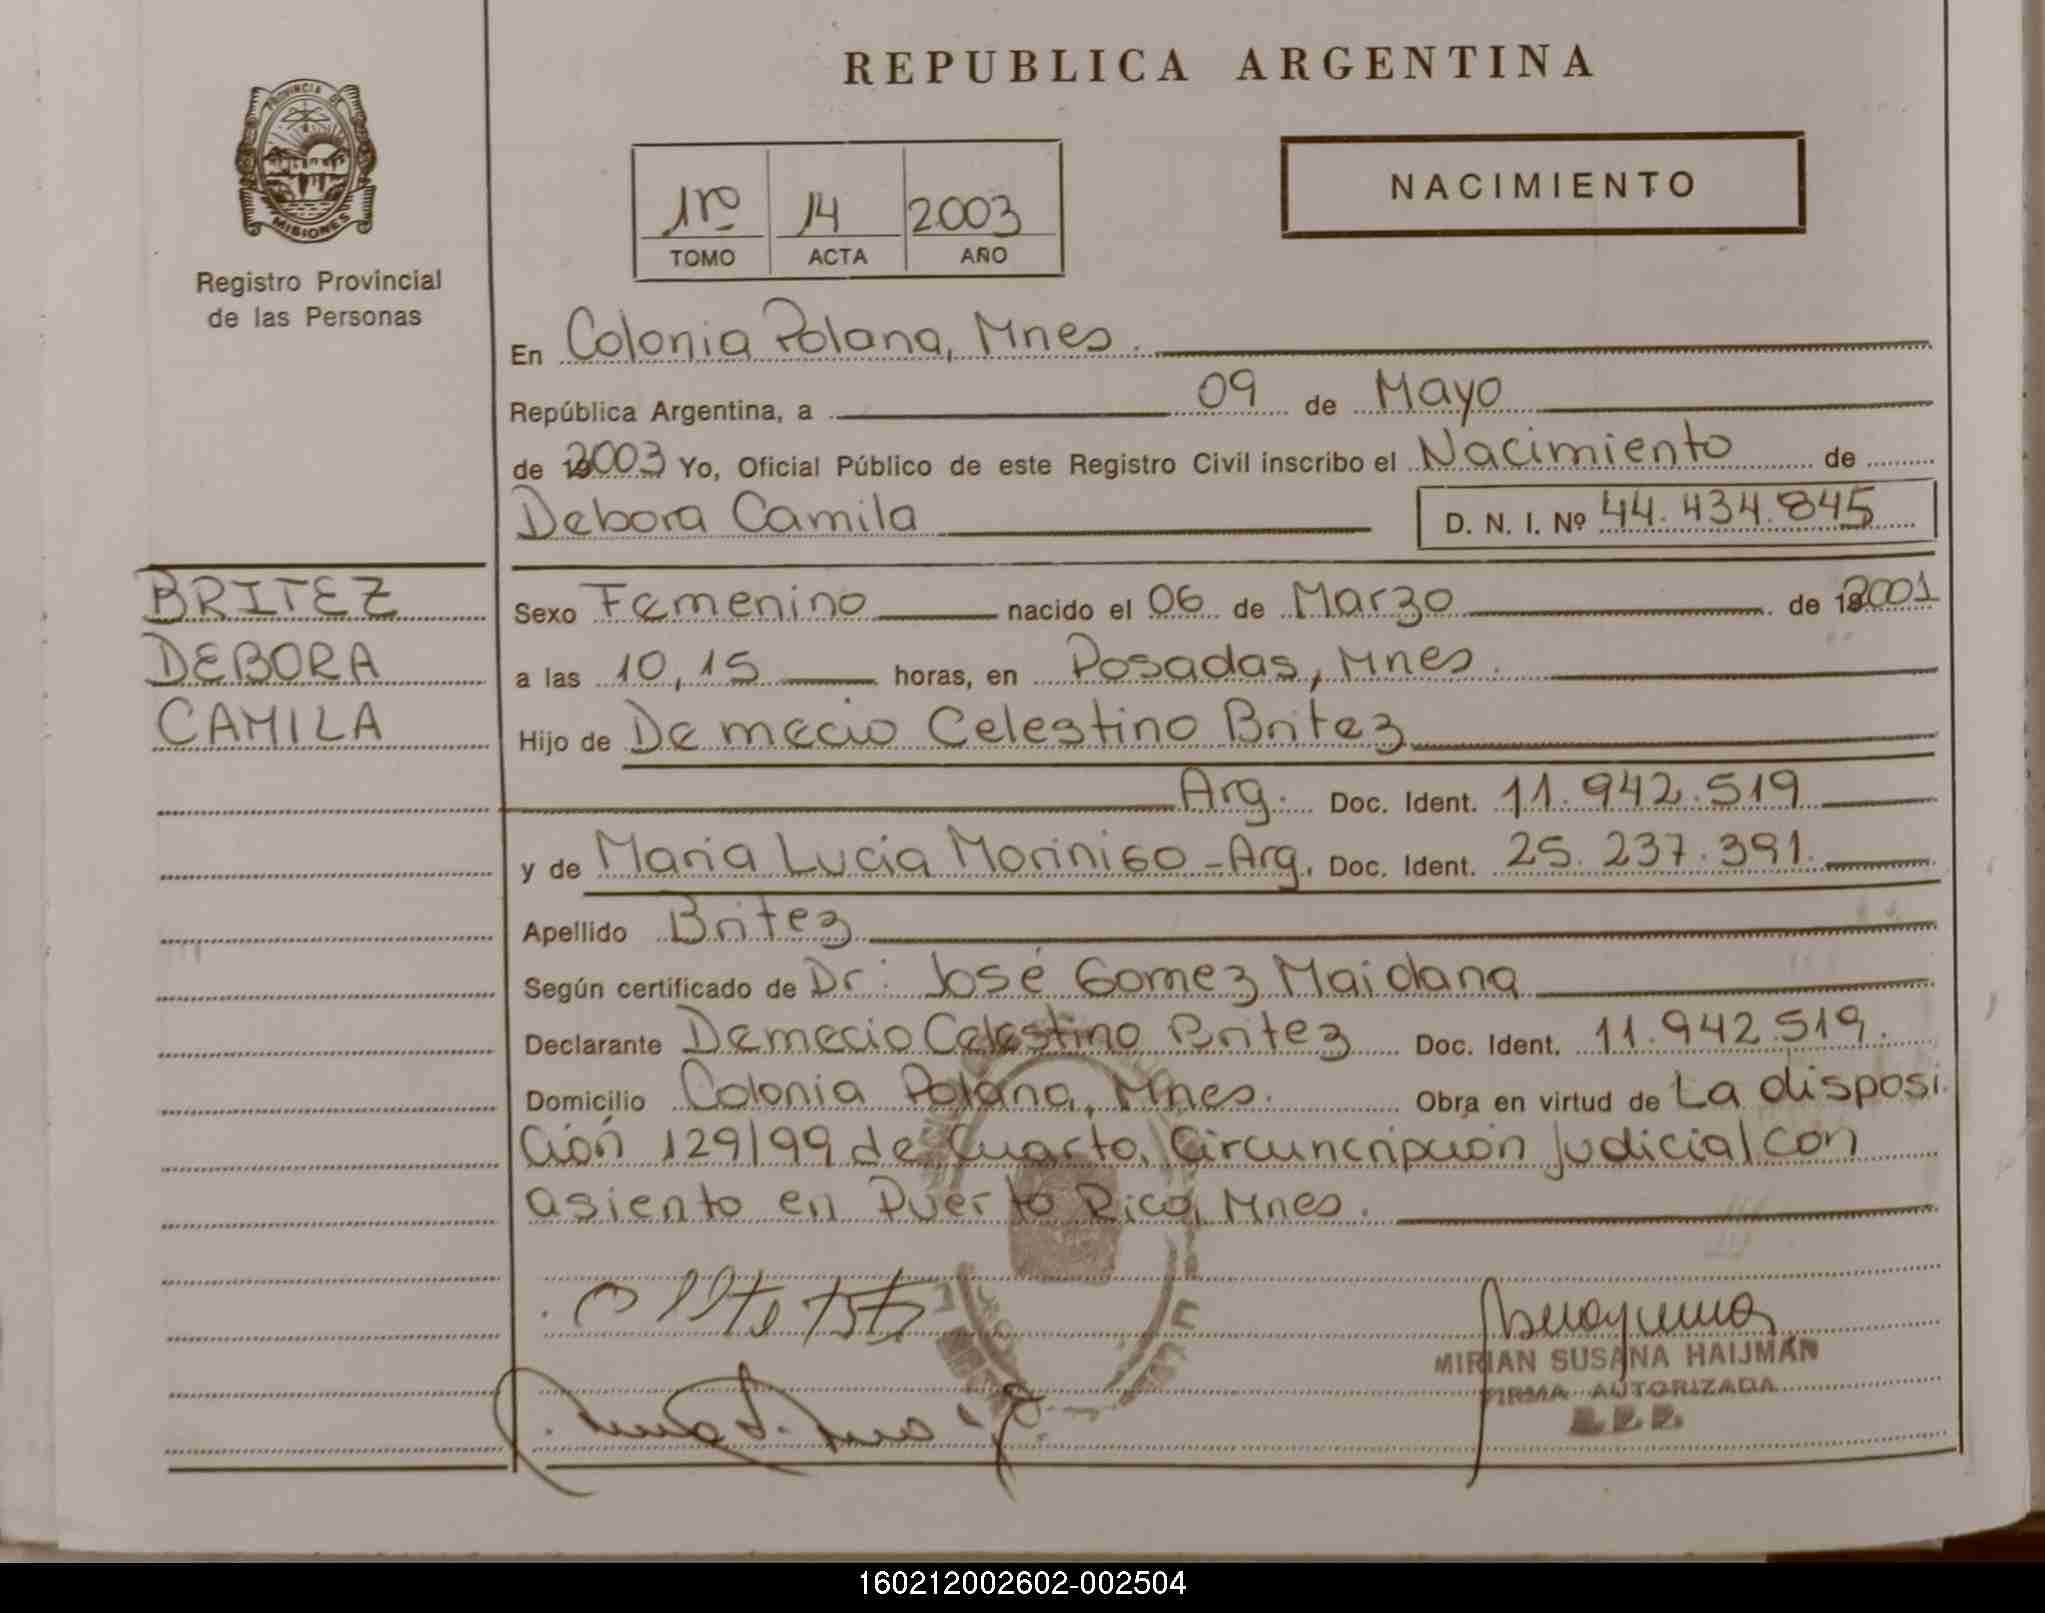 REPUBLICA ARGENTINA
PROVINCIA DE
MISIONES
Registro Provincial
de las Personas
1ro 14 2003
TOMO ACTA AÑO
NACIMIENTO
En Colonia Polana, Mnes.
República Argentina, a 09 de Mayo
de 2003 Yo, Oficial Público de este Registro Civil inscribo el Nacimiento de
Debora Camila D. N. I. Nº 44.434.845
BRITEZ
DEBORA
CAMILA
Sexo Femenino nacido el 06 de Marzo de 2001
a las 10,15 horas, en Posadas, Mnes.
Hijo de Demecio Celestino Britez
Arg. Doc. Ident. 11.942.519
y de Maria Lucia Morinigo - Arg. Doc. Ident. 25.237.391.
Apellido Britez
Según certificado de Dr: José Gomez Maidana
Declarante Demecio Celestino Britez Doc. Ident. 11.942.519.
Domicilio Colonia Polana, Mnes. Obra en virtud de La disposi
ción 129/99 de Cuarta, Circuncripción Judicial con
asiento en Puerto Rico, Mnes.
MIRIAN SUSANA HAIJMAN
FIRMA AUTORIZADA
160212002602-002504